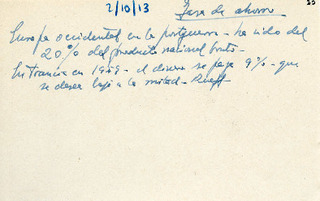 2/10/13
Tasa de ahorro
35
Europa occidental en la postguerra - ha sido del
20% del producto nacional bruto -
En Francia en 1949 - el dinero se paga 9% - que
se desea baje a la mitad - Rueff -